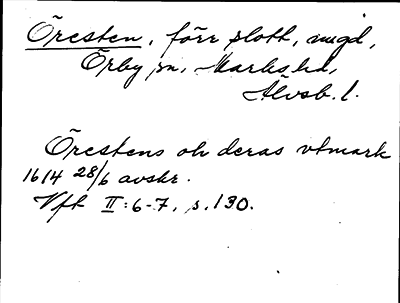 Öresten, förr slott, mgd,
Örby sn, Marks hd,
Älvsb. l.
Örestens oh deras utmark
1614 28/6 avskr.
Vft II:6-7, s. 130.